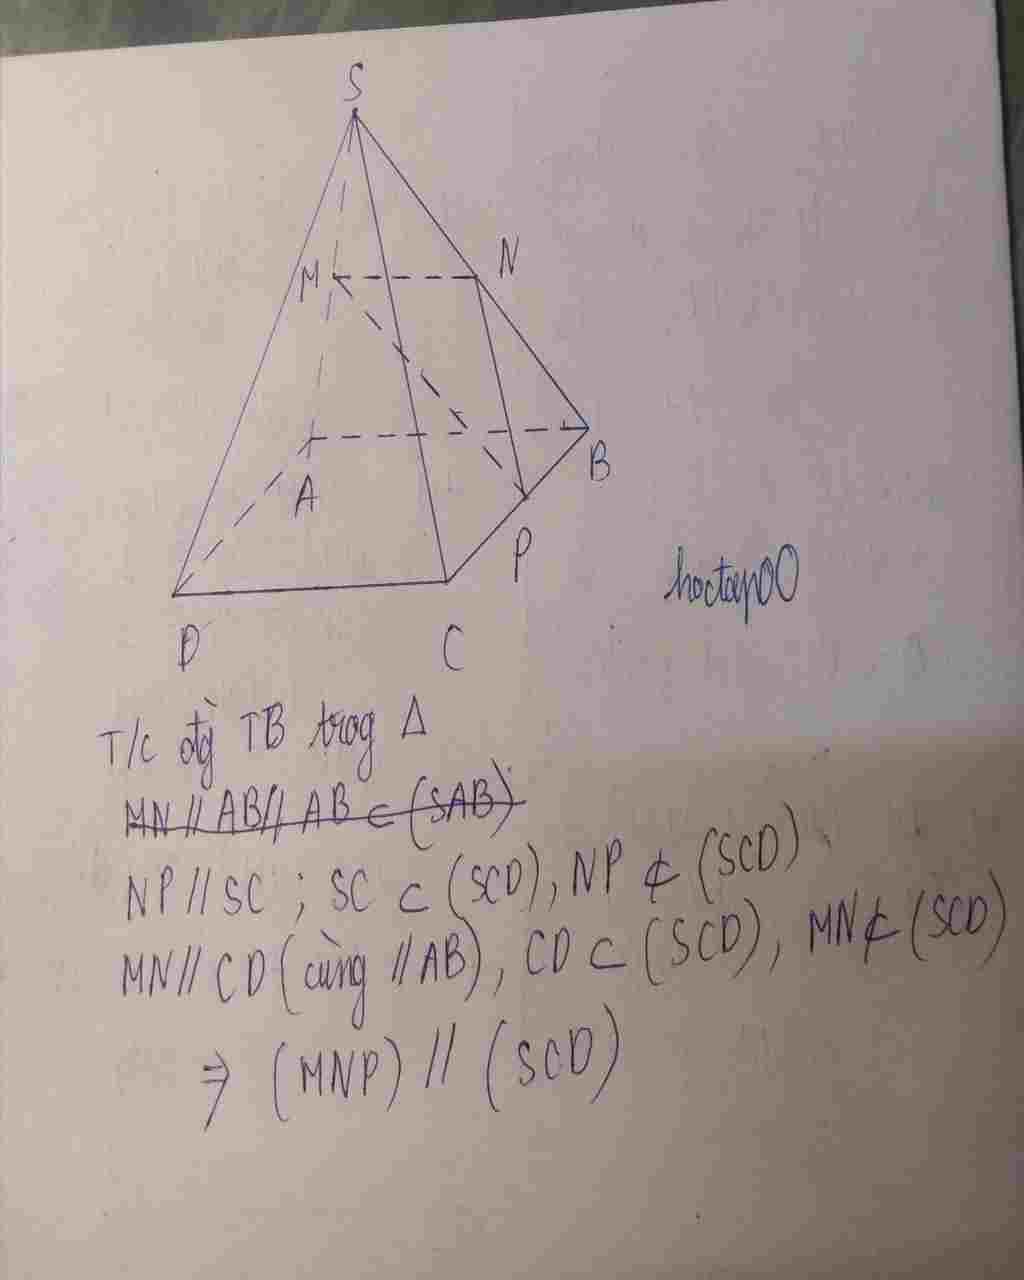 S
M
N
A
B
P
hoctap00
D
C
T/c đg TB trog Δ
MN // AB // AB ⊂ (SAB)
NP // SC ; SC ⊂ (SCD), NP ⊄ (SCD)
MN // CD (cùng // AB), CD ⊂ (SCD), MN ⊄ (SCD)
⇒ (MNP) // (SCD)